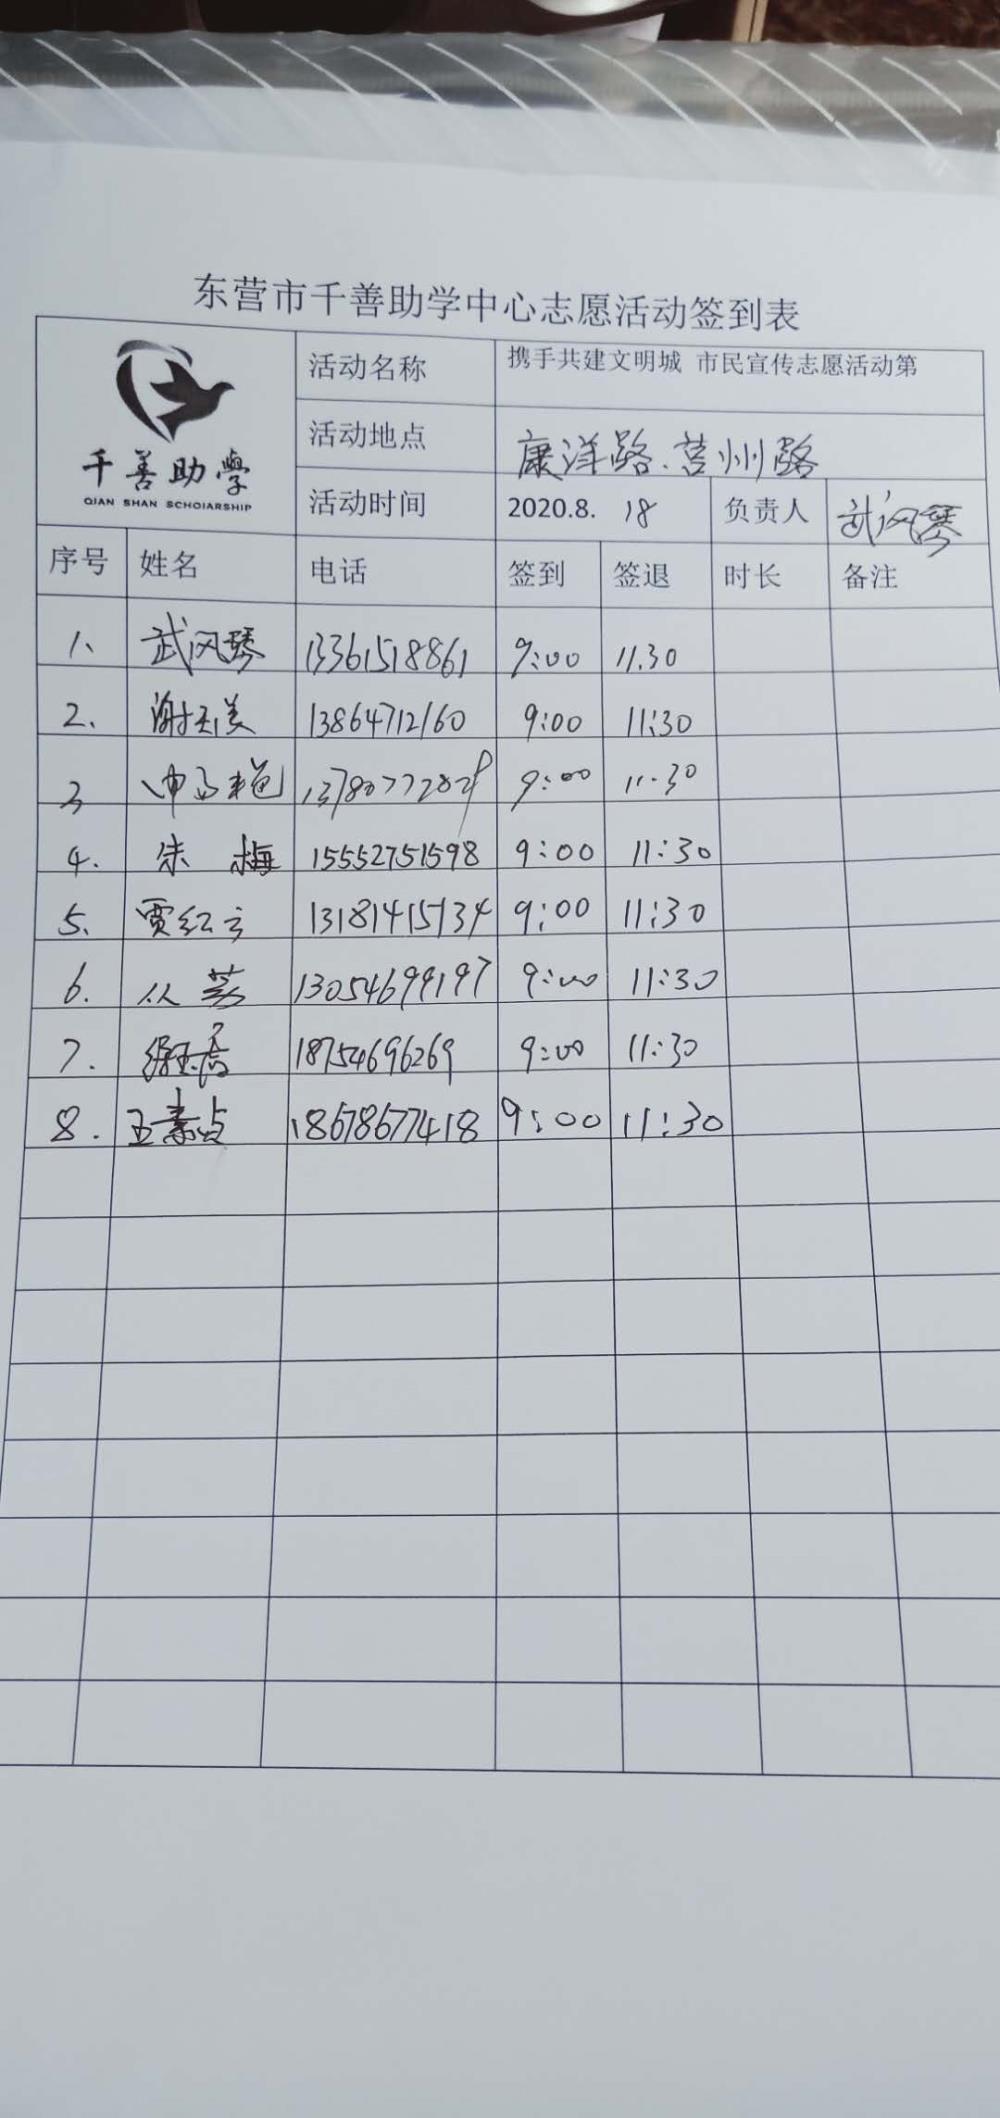 东营市千善助学中心志愿活动签到表
千善助學
QIAN SHAN SCHOIARSHIP
活动名称 携手共建文明城 市民宣传志愿活动第
活动地点 康洋路.莒州路
活动时间 2020.8. 18 负责人 武风琴
序号 姓名 电话 签到 签退 时长 备注
1、 武风琴 13361518861 9:00 11.30
2、 谢玉美 13864712160 9:00 11:30
3 13780772828 9:00 11:30
4. 朱梅 15552751598 9:00 11:30
5、 贾红云 13181415134 9:00 11:30
6. 13054699197 9:00 11:30
7. 18754696269 9:00 11:30
8. 王素贞 18678677418 9:00 11:30